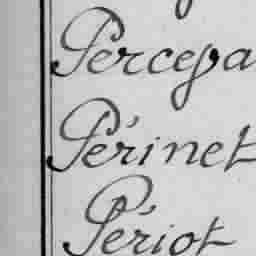 Percepa
Périnet
Périot